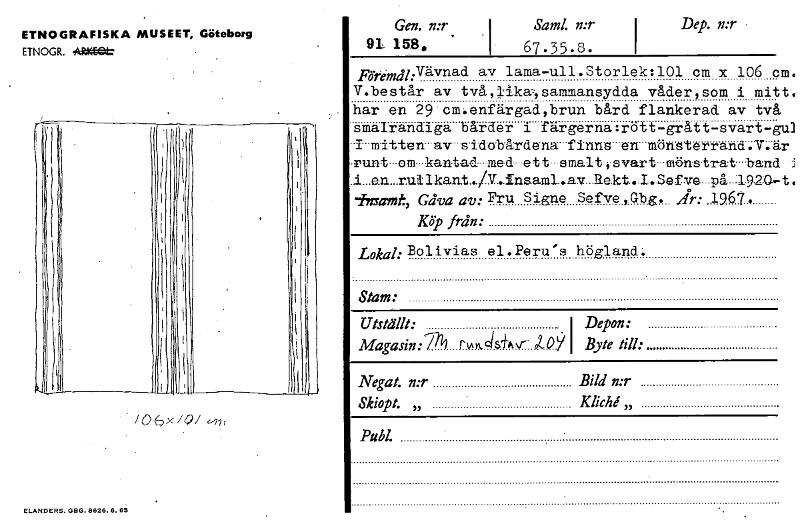 ETNOGRAFISKA MUSEET, Göteborg
ETNOGR. ARKEOL.
106x101 cm.
ELANDERS. GBG. 8626. 6. 65
Gen. n:r Saml. n:r Dep. n:r
91 158. 67.35.8.
Föremål: Vävnad av lama-ull.Storlek:101 cm x 106 cm.
V.består av två,lika,sammansydda våder,som i mitt.
har en 29 cm.enfärgad,brun bård flankerad av två
smalrandiga bårder i färgerna:rött-grått-svart-gul
I mitten av sidobårdena finns en mönsterrand.V.är
runt om kantad med ett smalt,svart mönstrat band i
i en rutlkant./V.Insaml.av Rekt.I.Sefve på 1920-t.
Insaml., Gåva av: Fru Signe Sefve,Gbg. År: 1967.
Köp från:
Lokal: Bolivias el.Peru´s högland.
Stam:
Utställt: Depon:
Magasin: TM rundstav 204 Byte till:
Negat. n:r Bild n:r
Skiopt. „ Kliché „
Publ.